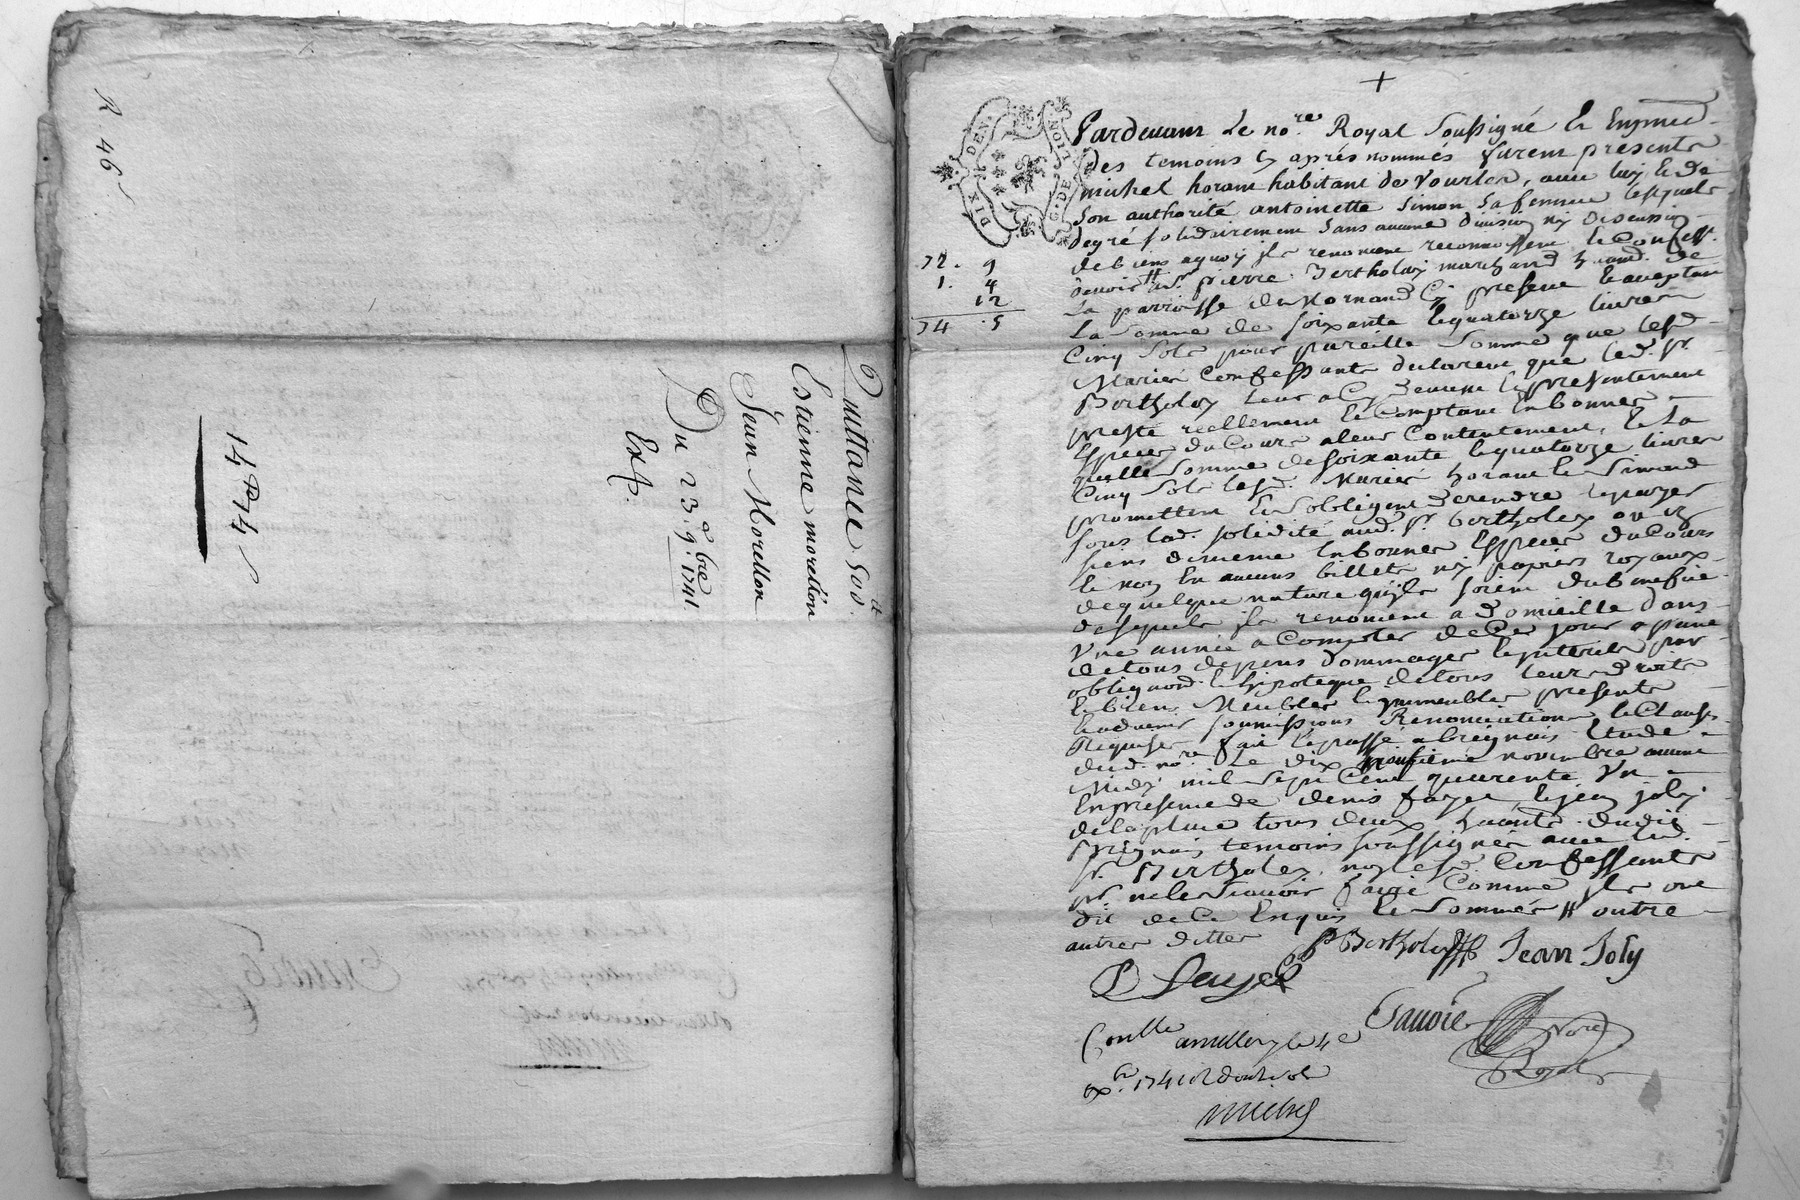 R 46
Quittance 50#
Estienne morellon
Jean Morellon
Du 23e 9bre 1741
Exp.
DIX DEN
G. DE LION
+
Pardevant Le nore Royal soussigné Et En presce
des temoins Cy aprés nommés furent presents
michel horant habitant de Vourles, avec luy Et de
son authorité antoinette Simon sa femme lesquels
de gré solidairement sans aucune division ny discussion
de biens aquoy ils renoncent reconnoissent Et Confesst
devoir au sr pierre Bertholay marchand habitant de
La parroisse de Mornand Cy present Et aceptant
La Somme de soixante Et quatorze livres
Cinq Sols pour pareille Somme que lesd
Mariés Confessants declarent que led. sr
Bertholay leur a Cy devant Et presentement
presté reellement Et Comptant En bonnes
Especes du Cours a leur Contentement, Et La
quelle Somme de soixante Et quatorze livres
Cinq Sols lesd. Mariés horant Et Simond
promettent Et s'obligent de rendre Et payer
sous lad. solidité aud. sr bertholay ou es
siens de meme En bonnes Especes du Cours
Et non En aucuns billets ny papiers royaux
de quelque nature qu'ils soient du benefice
desquels ils renoncent a domicille dans
Une année a Compter de Ce jour a peine
de tous depens dommages Et interets par
obligaon. Et hipoteque de tous leurs droits
Et biens Meubles Et immeubles presents
Et advenir soumissions Renonciations Et Clauses
Requises fait Et passé a brignais Etude
dud. nore Le dix neufieme novembre avant
Midy mil Sept Cent quarante Un
En presence de denis fayet, Et jean joly
de la place tous deux habants dudit
Brignais temoins soussignés avec led.
sr Bertholay, non lesd. Confessants
pr ne le Sçavoir faire Comme ils ont
dit de Ce Enquis Et Sommés # outre
autres dettes
72. 9
1. 4
12
74 . 5
PBertholay Jean Joly
D fayet
Savoie Nore
Royal
Conlle a millery le 4e
xbr. 1741